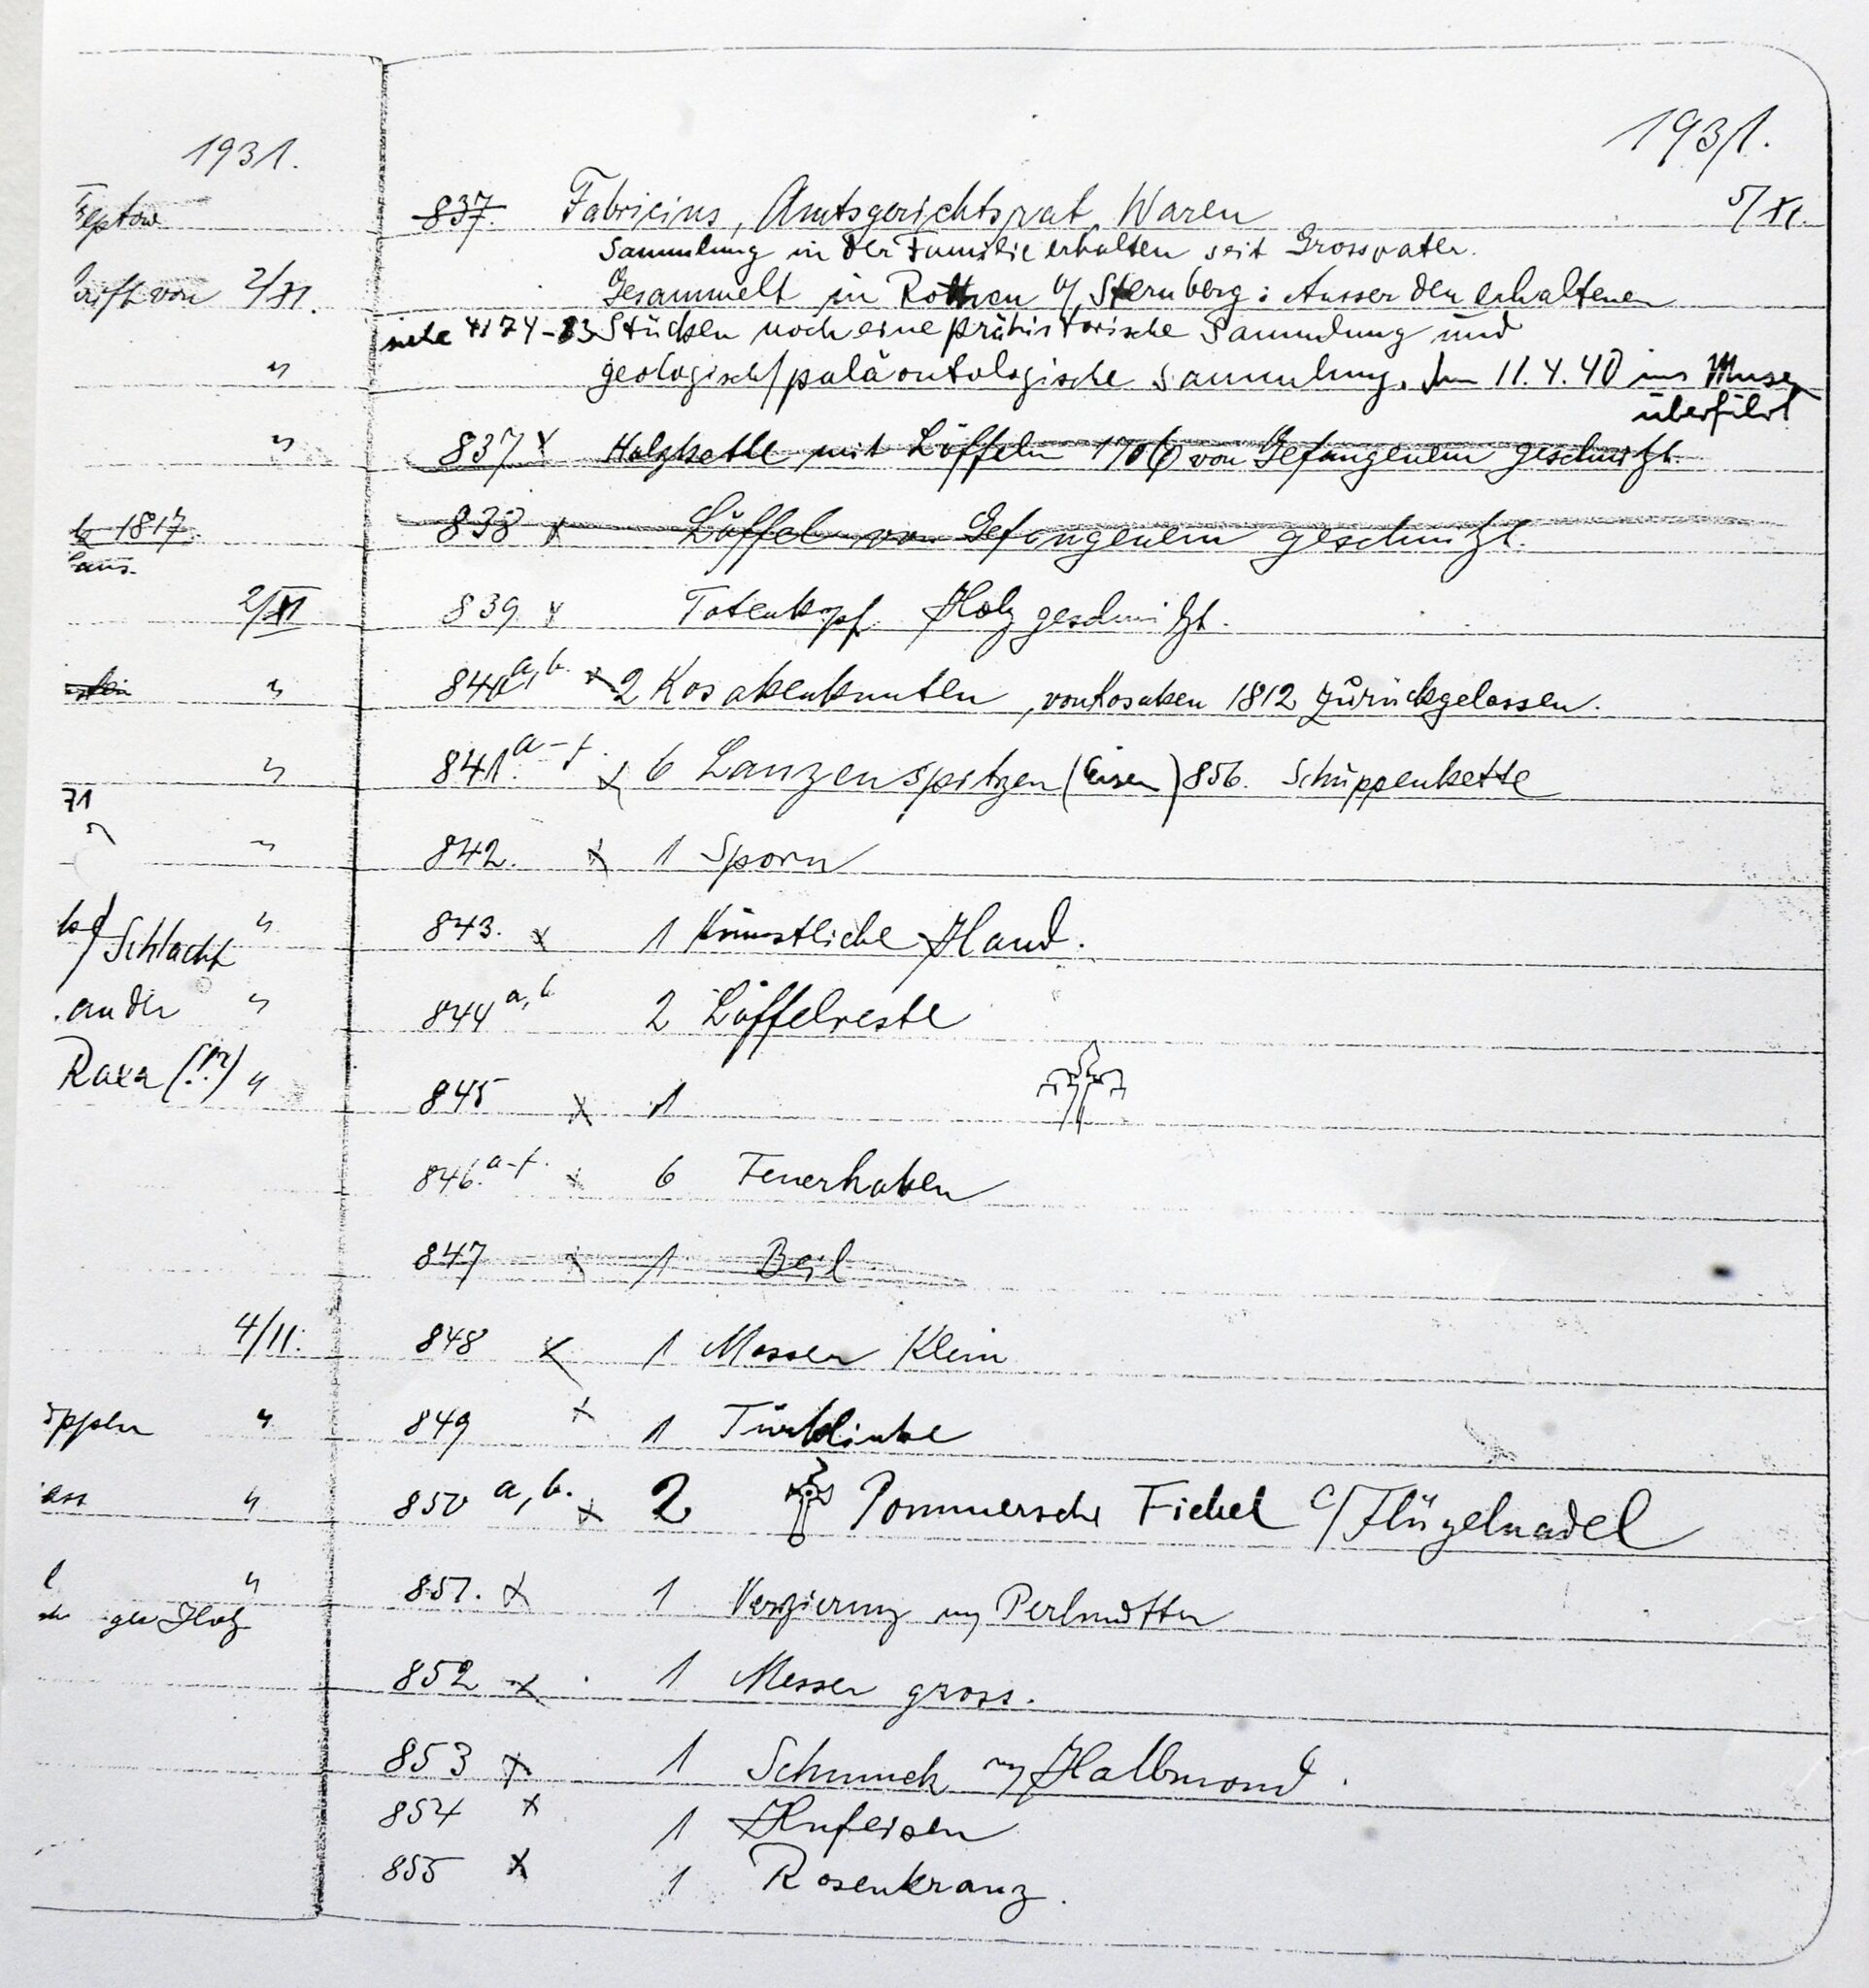 1931.
1931.
Treptow
837. Fabricius, Amtsgerichtsrat, Waren 5/XI.
Sammlung in der Familie erhalten seit Grossvater.
2/XI. Gesammelt in Rothen b/ Sternberg: Ausser den erhaltenen
siehe 4174-83 Stücken noch eine prähistorische Sammlung und
" geologisch/paläontologische Sammlung. Am 11.4.40 ins Museum
überführt
" 837 x Holzkette mit Löffeln von Gefangenem geschnitzt.
1817. 838 x Löffel von Gefangenem geschnitzt.
2/XI 839 x Totenkopf Holz geschnitzt.
" 840 a,b. x 2 Kosakenknuten, von Kosaken 1812 zurückgelassen.
" 841. a-f. x 6 Lanzenspitzen (Eisen) 856. Schuppenkette
71
" " 842. x 1 Sporn
Schlacht " 843. x 1 Künstliche Hand.
an der " 844 a,b 2 Löffelreste
Raxa (!?) " 845 x 1
846. a-f. x 6 Feuerhaken
847 x 1 Beil
4/11. 848 x 1 Messer Klein
" 849 x 1 Türklinke
" 850 a,b. x 2 Pommersche Fiebel c/Flügelnadel
" 851. x 1 Verzierung m/ Perlmutter
Holz
852 x 1 Messer gross.
853 x 1 Schmuck m/ Halbmond.
854 x 1 Hufeisen
855 x 1 Rosenkranz.